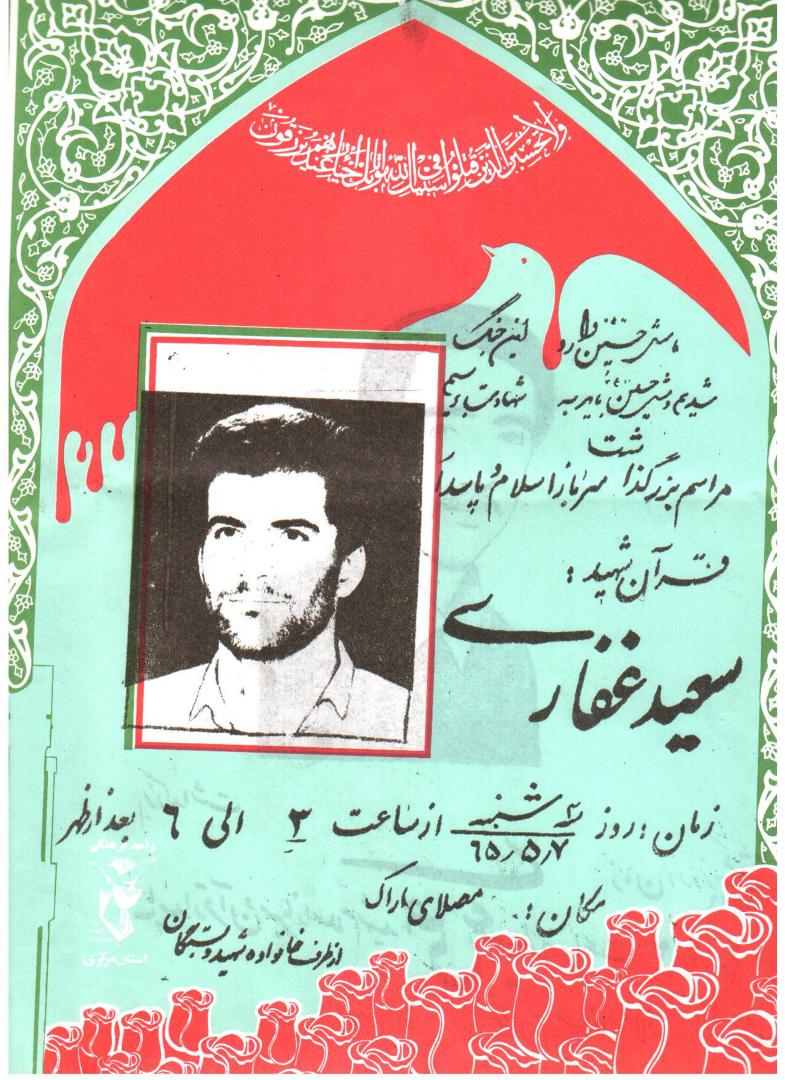 ولا تحسبن الذين قتلوا فی سبیل الله امواتا بل احیاء عند ربهم یرزقون
مثل حسین وارد این جنگ
شدیم و مثل حسین باید به شهادت برسیم
مراسم بزرگداشت سرباز اسلام و پاسدار
قرآن شهید :
سعید غفاری
زمان : روز سه شنبه از ساعت ۳ الی ۶ بعد از ظهر
۶۵/۵/۷
مکان : مصلای اراک
از طرف خانواده شهید و بستگان
واحد فرهنگی
استان مرکزی